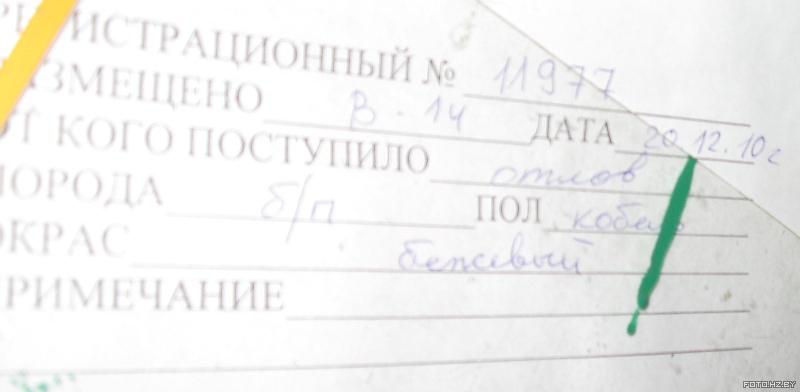 РЕГИСТРАЦИОННЫЙ № 11977
РАЗМЕЩЕНО В-14 ДАТА 20.12.10г
ОТ КОГО ПОСТУПИЛО отлов
ПОРОДА б/п ПОЛ кобель
ОКРАС бежевый
ПРИМЕЧАНИЕ
FOTO.HZ.BY